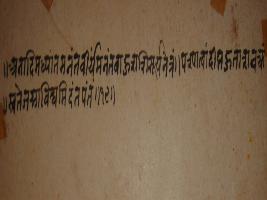 ॥अनादिमध्यांतमनंतवीर्यमनंतबाहुंशशिसूर्यनेत्रं॥पश्यामित्वांदीप्तहुताशवक्त्रं
॥स्वतेजसाविश्वमिदंतपंतं॥१९॥